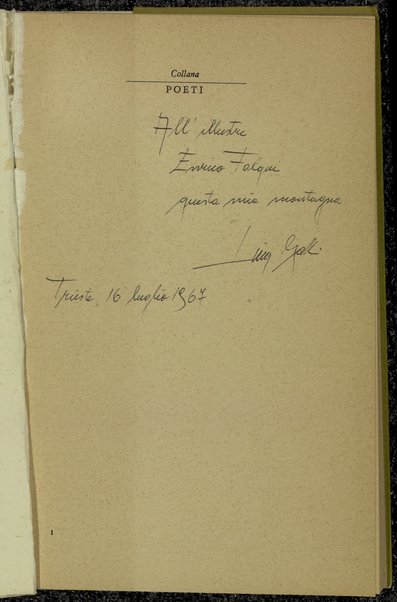 Collana
POETI
All' illustre
Enrico Falqui
questa mia montagna
Luigi Galli
Trieste, 16 luglio 1967
1